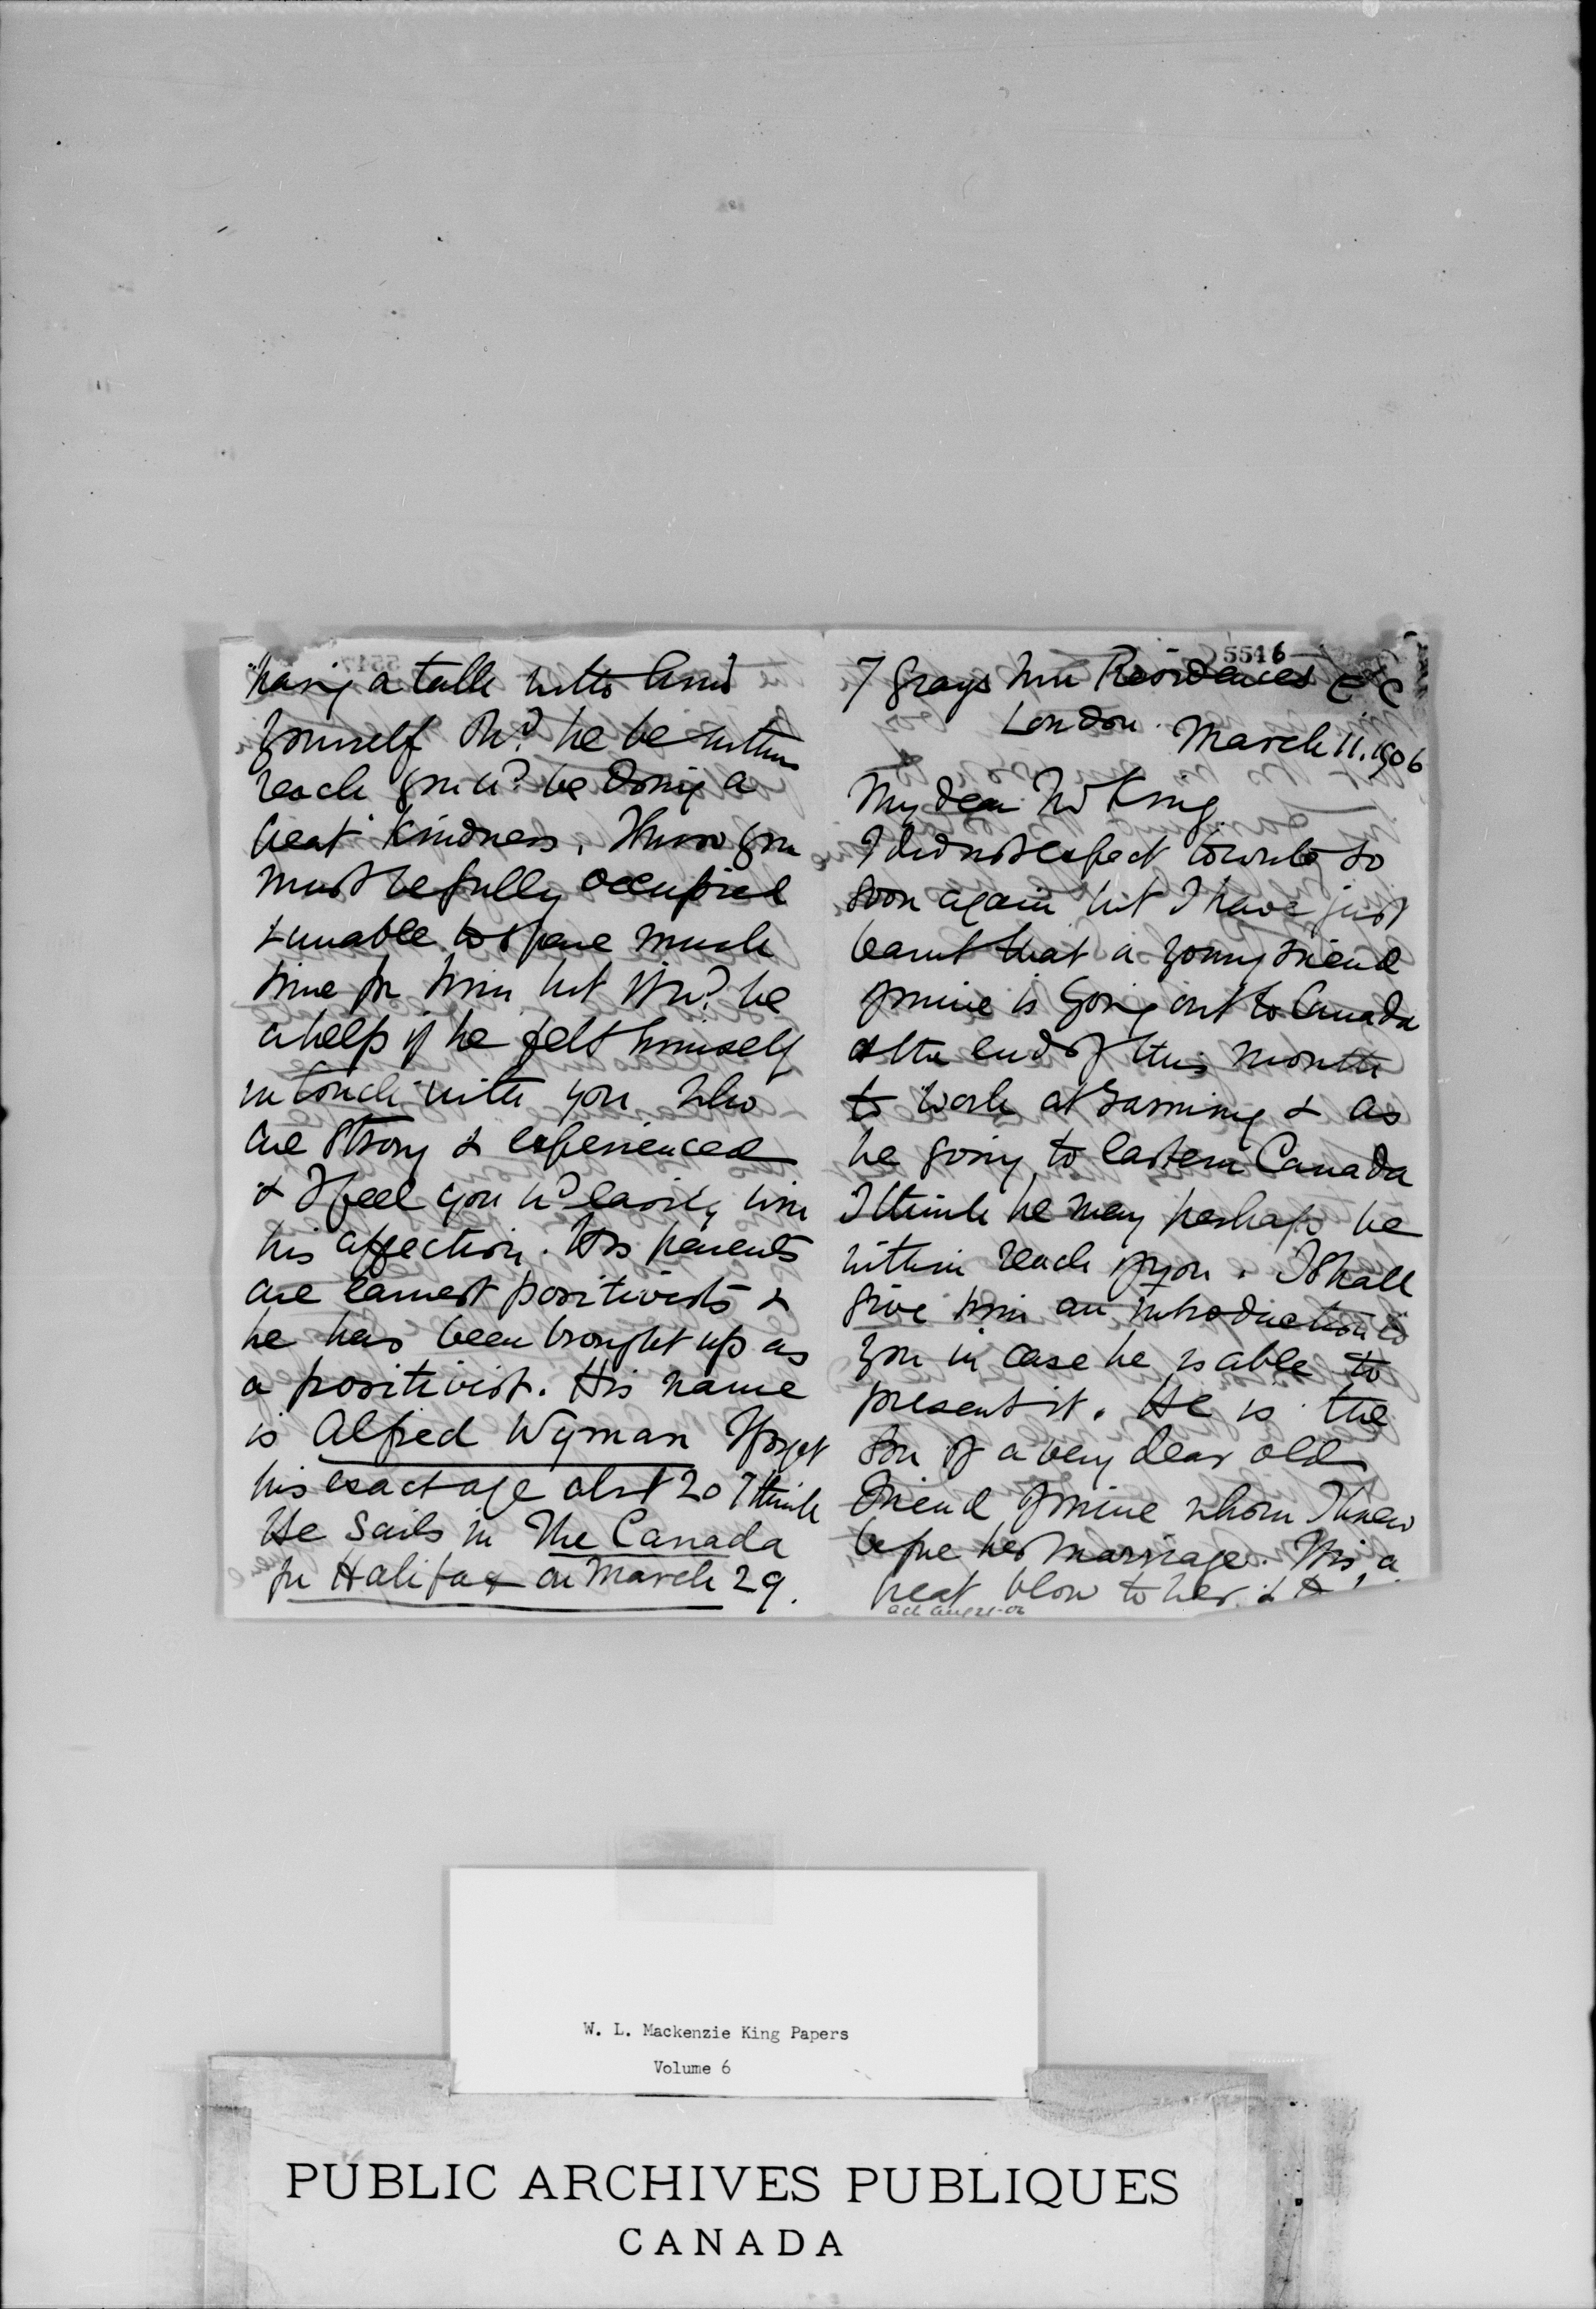 5516
7 Grays Inn Residences E C
London. March 11. 1906
My dear Mr King.
I did not expect to write so
soon again but I have just
learnt that a young friend
of mine is going out to Canada
at the end of this month
to work at farming & as
he going to Eastern Canada
I think he may perhaps be
within reach of you. I shall
give him an introduction to
you in case he is able to
present it. He is the
son of a very dear old
friend of mine whom I knew
before her marriage. It is a
great blow to her & to
ack Aug 21-06
having a talk with him
yourself shd he be within
reach you wd be doing a
great kindness. I know you
must be fully occupied
& unable to spare much
time for him but it wd be
a help if he felt himself
in touch with you who
are strong & experienced
& I feel you wd easily win
his affection. His parents
are earnest positivists &
he has been brought up as
a positivist. His name
is Alfred Wyman I forget
his exact age abt 20 I think
He sails in The Canada
for Halifax on March 29.
W. L. Mackenzie King Papers
Volume 6
PUBLIC ARCHIVES PUBLIQUES
CANADA